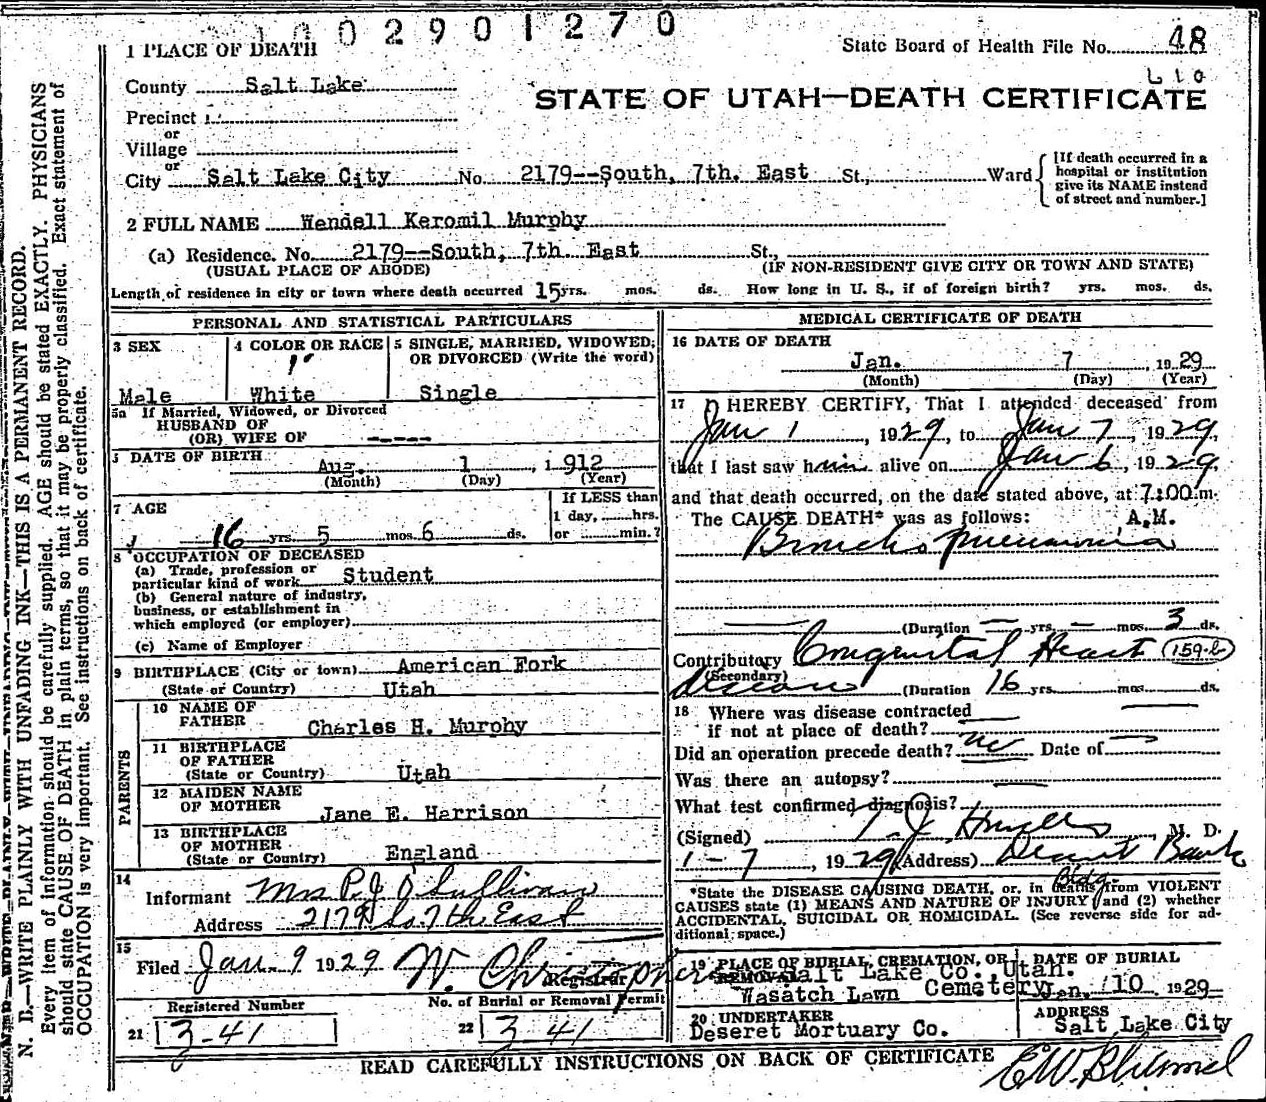 1002901270
1 PLACE OF DEATH
State Board of Health File No. 48
L 10
County Salt Lake
STATE OF UTAH—DEATH CERTIFICATE
Precinct
or
Village
or
City Salt Lake City No 2179--South, 7th. East St., Ward
[If death occurred in a
hospital or institution
give its NAME instead
of street and number.]
2 FULL NAME Wendell Keromil Murphy
(a) Residence. No. 2179--South, 7th. East St.,
(USUAL PLACE OF ABODE) (IF NON-RESIDENT GIVE CITY OR TOWN AND STATE)
Length of residence in city or town where death occurred 15 yrs. mos. ds. How long in U. S., if of foreign birth? yrs. mos. ds.
PERSONAL AND STATISTICAL PARTICULARS
3 SEX
Male
4 COLOR OR RACE
White
5 SINGLE, MARRIED, WIDOWED,
OR DIVORCED (Write the word)
Single
5a If Married, Widowed, or Divorced
HUSBAND OF
(OR) WIFE OF -----
DATE OF BIRTH
Aug. 1, 1912
(Month) (Day) (Year)
7 AGE
16 yrs. 5 mos. 6 ds.
If LESS than
1 day, hrs.
or min.?
8 OCCUPATION OF DECEASED
(a) Trade, profession or
particular kind of work Student
(b) General nature of industry,
business, or establishment in
which employed (or employer)
(c) Name of Employer
9 BIRTHPLACE (City or town) American Fork
(State or Country) Utah
PARENTS
10 NAME OF
FATHER Charles H. Murphy
11 BIRTHPLACE
OF FATHER
(State or Country) Utah
12 MAIDEN NAME
OF MOTHER Jane E. Harrison
13 BIRTHPLACE
OF MOTHER
(State or Country) England
14
Informant Mrs P.J. O'Sullivan
Address 2179 So 7th East
15
Filed Jan. 9 1929 W. Christophers
Registrar
Registered Number No. of Burial or Removal Permit
21 3-41 22 3-41
MEDICAL CERTIFICATE OF DEATH
16 DATE OF DEATH
Jan. 7, 1929
(Month) (Day) (Year)
17 I HEREBY CERTIFY, That I attended deceased from
Jan 1, 1929, to Jan 7, 1929,
that I last saw him alive on Jan 6, 1929,
and that death occurred, on the date stated above, at 7:00 m.
The CAUSE DEATH* was as follows: A.M.
Broncho pneumonia
(Duration — yrs. — mos. 3 ds.
Contributory Congenital Heart 159-b
(Secondary)
disease (Duration 16 yrs. mos. ds.
18 Where was disease contracted
if not at place of death?
Did an operation precede death? no Date of
Was there an autopsy?
What test confirmed diagnosis?
(Signed) T. J. M. D.
1-7, 1929 (Address) Deseret Bank
Bldg.
*State the DISEASE CAUSING DEATH, or, in deaths from VIOLENT
CAUSES state (1) MEANS AND NATURE OF INJURY and (2) whether
ACCIDENTAL, SUICIDAL OR HOMICIDAL. (See reverse side for ad-
ditional space.)
19 PLACE OF BURIAL, CREMATION, OR
REMOVAL Salt Lake Co., Utah.
Wasatch Lawn Cemetery
DATE OF BURIAL
Jan. 10 1929
20 UNDERTAKER
Deseret Mortuary Co.
ADDRESS
Salt Lake City
READ CAREFULLY INSTRUCTIONS ON BACK OF CERTIFICATE
N. B.—WRITE PLAINLY WITH UNFADING INK—THIS IS A PERMANENT RECORD.
Every item of information should be carefully supplied. AGE should be stated EXACTLY. PHYSICIANS
should state CAUSE OF DEATH in plain terms, so that it may be properly classified. Exact statement of
OCCUPATION is very important. See instructions on back of certificate.